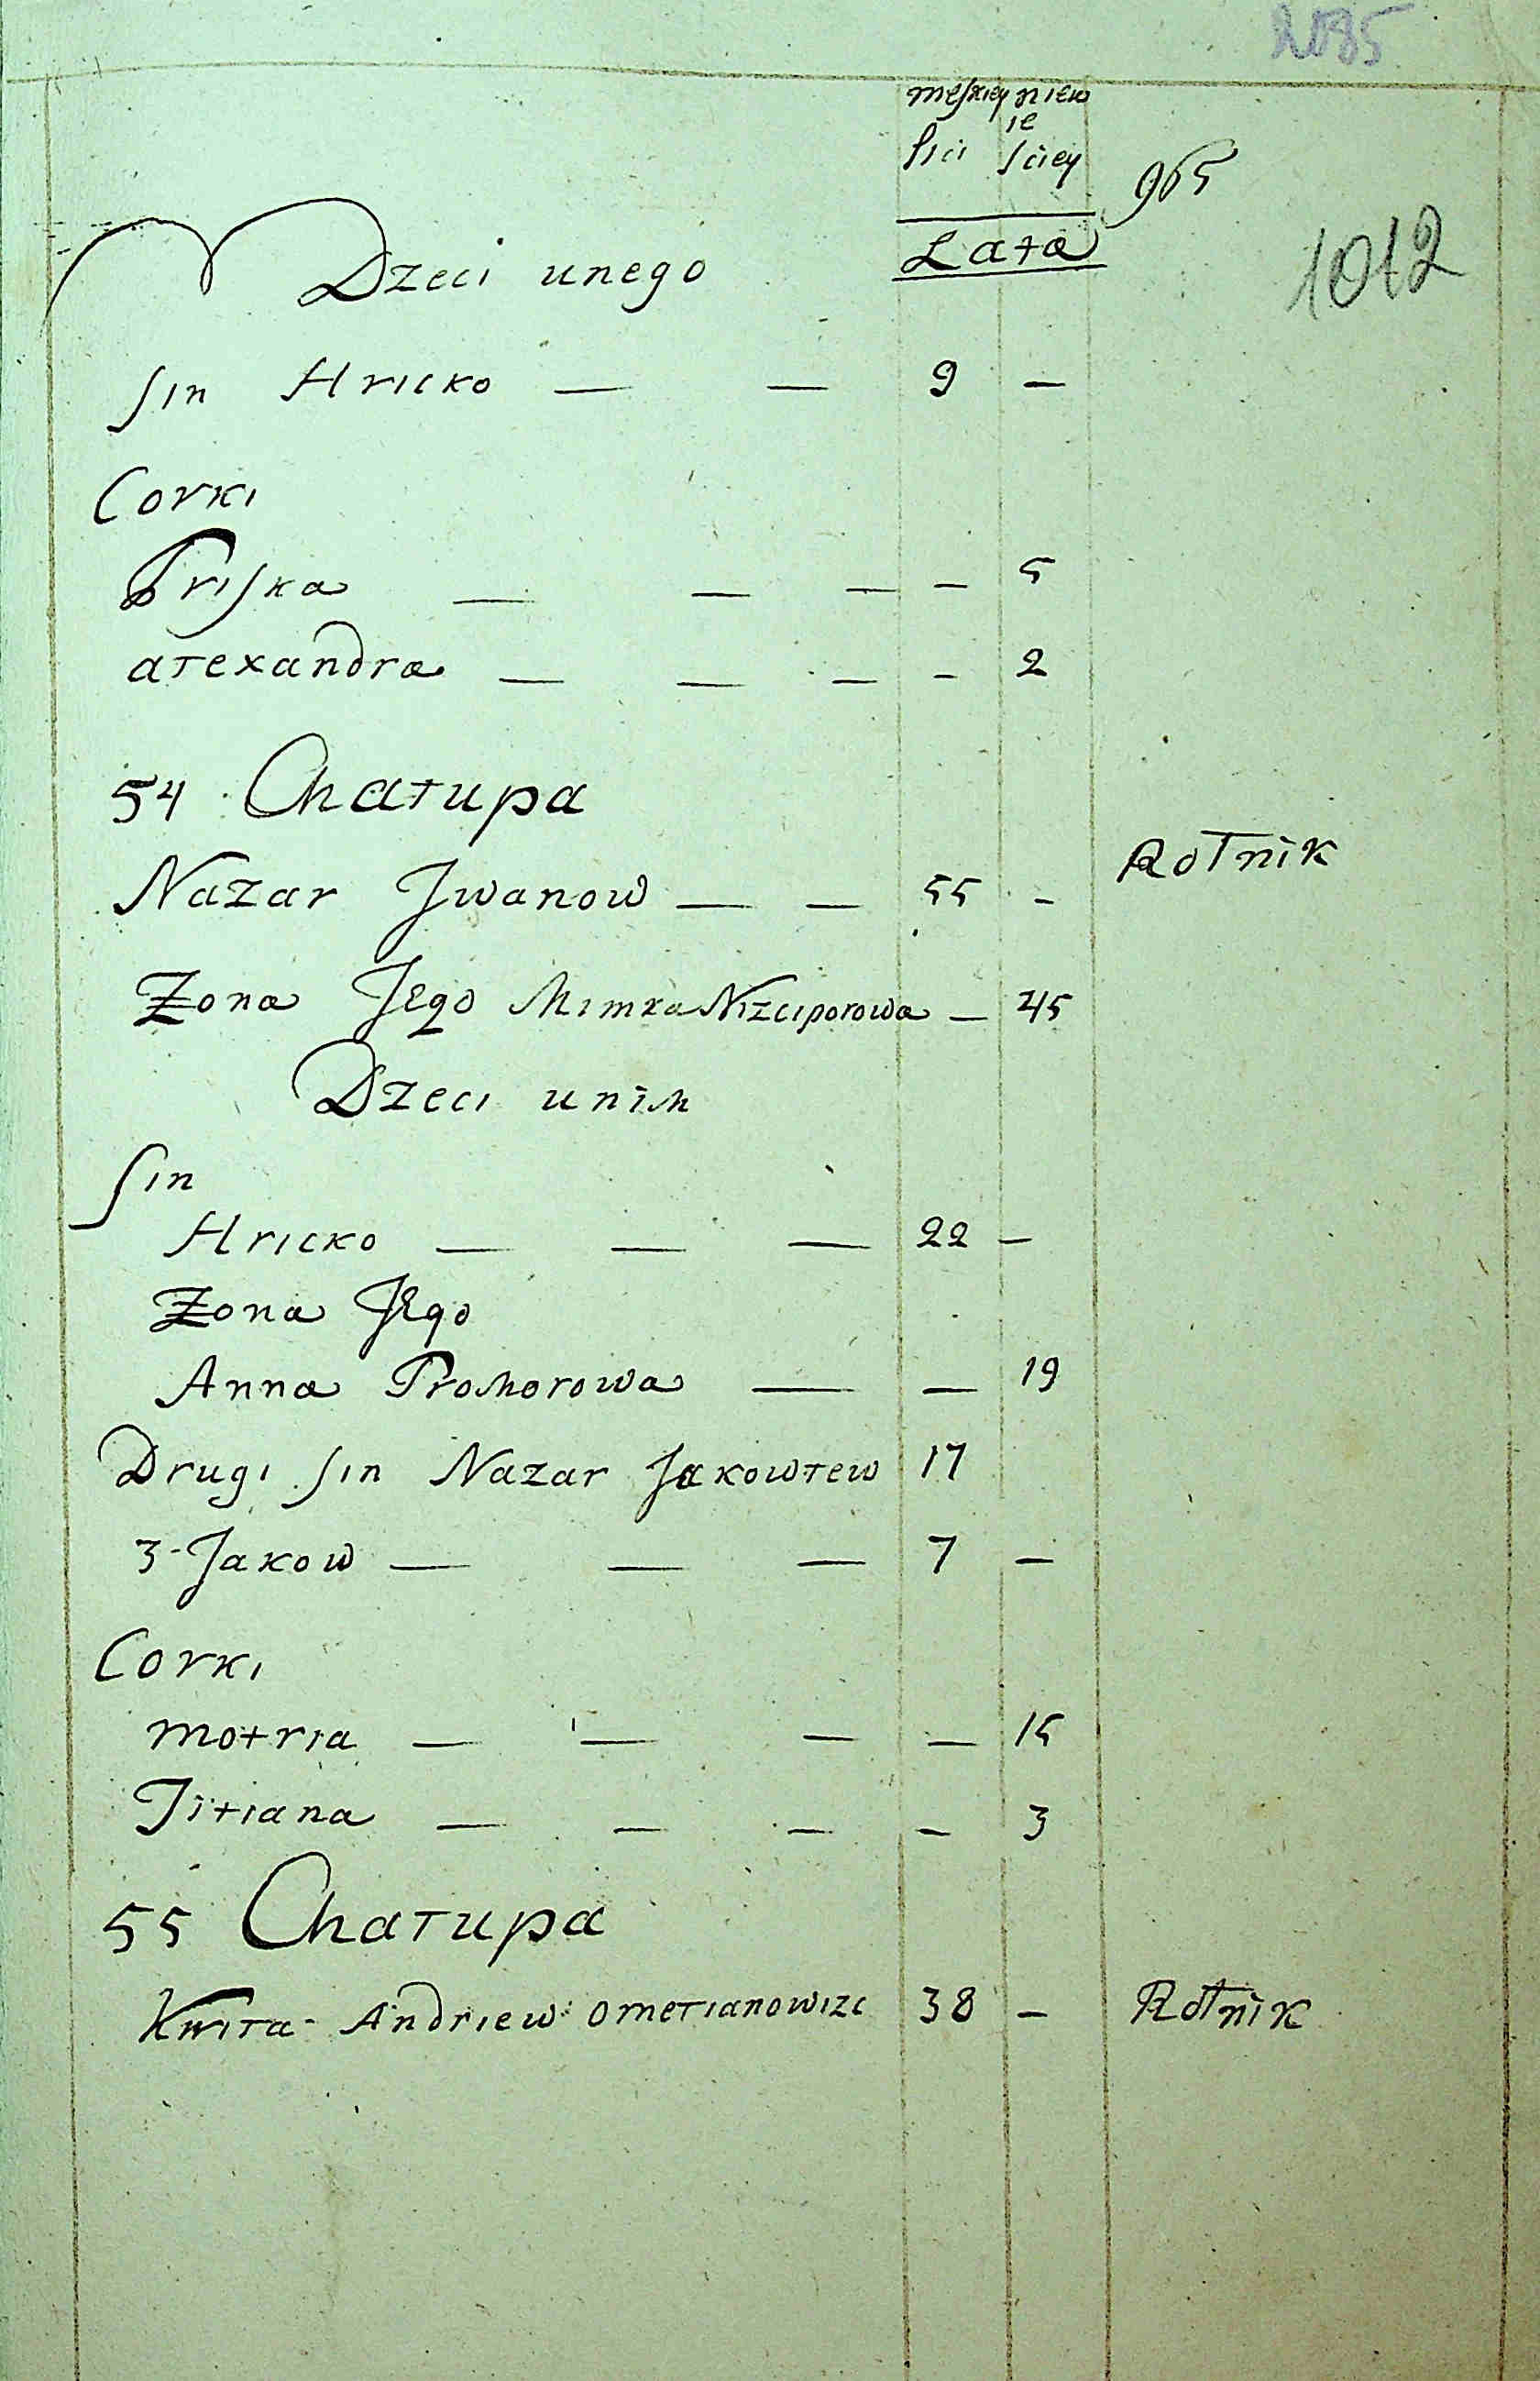 2085
meskiey niew
ie
płci sciey
965
Lata
1012
Dzeci unego
sin Hricko — — 9 —
Corki
Priska — — — — 5
alexandra — — — — 2
54 Chałupa
Rolnik
Nazar Jwanow — — 55 -
Zona Jego Mimka Nizciporowa — 45
Dzeci unih
sin
Hricko — — — 22 —
Zona Jego
Anna Prohorowa — — 19
Drugi sin Nazar Jakowlew 17
3-Jakow — — — 7 —
Corki
motria — — — — 15
Titiana — — — — 3
55 Chałupa
Kwita - Andriew omelianowizc 38 — Rolnik